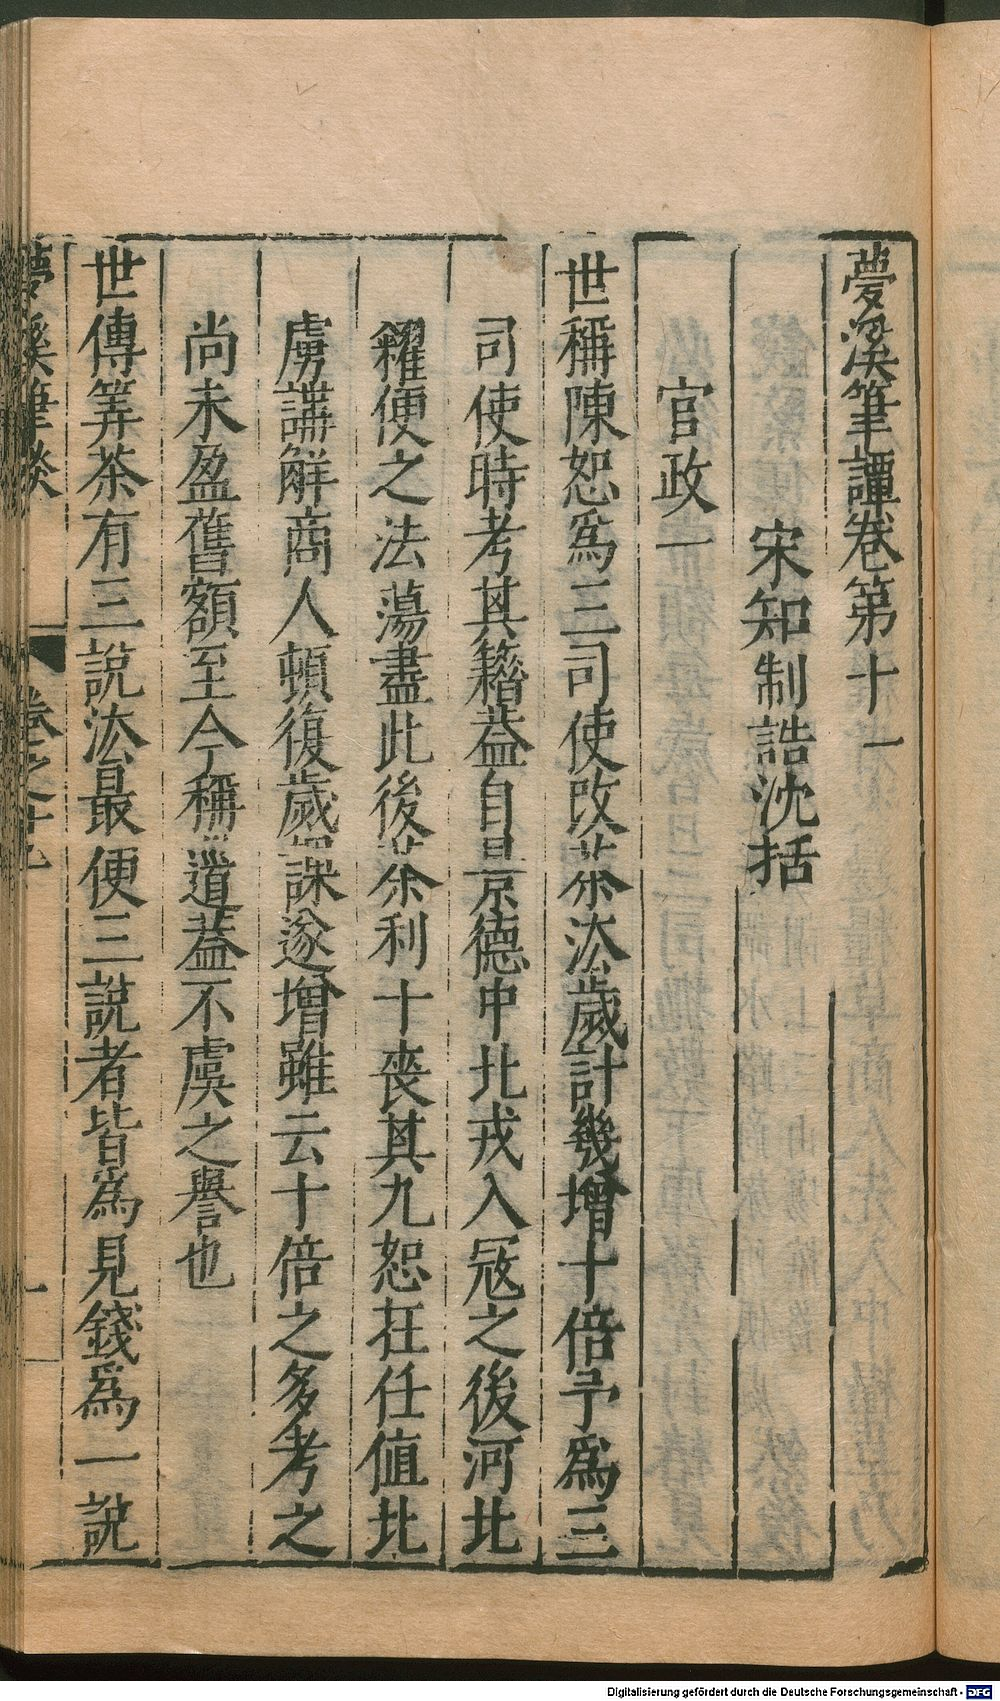 夢溪筆譚卷第十一
宋知制誥沈括
官政一
世稱陳恕為三司使改茶法歲計幾增十倍予為三
司使時考其籍蓋自景德中北戎入寇之後河北
糴便之法蕩盡此後茶利十喪其九恕在任值北
虜講解商人頓復歲課遂增雖云十倍之多考之
尚未盈舊額至今稱道蓋不虞之譽也
世傳筭茶有三說法最便三說者皆為見錢為一說
夢溪筆談
Digitalisierung gefördert durch die Deutsche Forschungsgemeinschaft - DFG